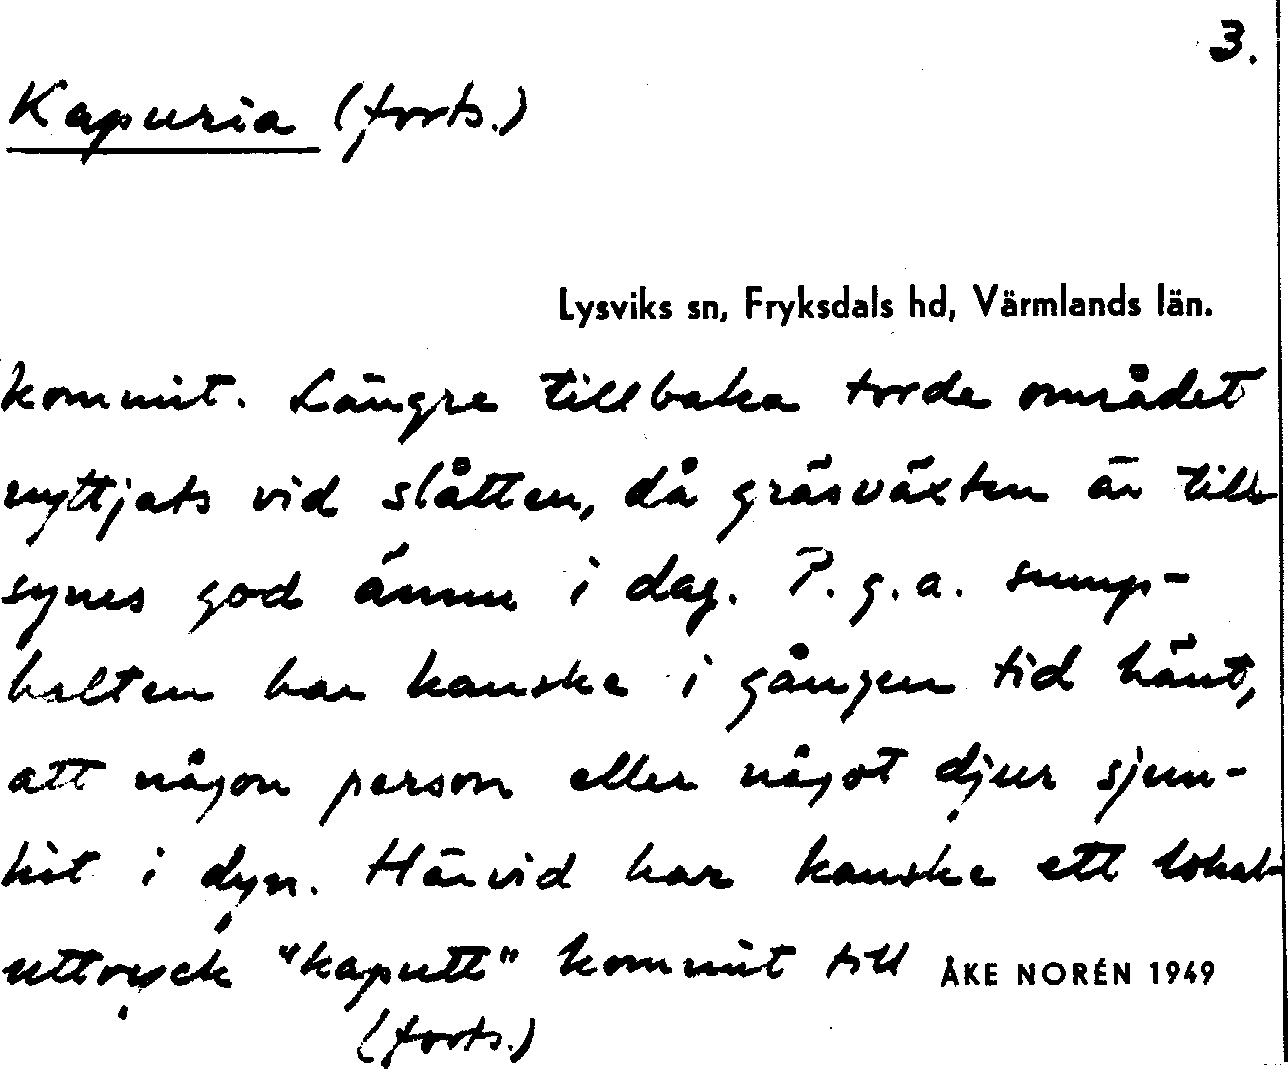 3.
Kapuria (forts.)
Lysviks sn, Fryksdals hd, Värmlands län.
kommit. Längre tillbaka torde området
nyttjats vid slåtten, då gräsväxten är till-
synes god ännu i dag. P.g.a. sump-
halten har kanske i gången tid hänt,
att någon person eller något djur sjun-
kit i dyn. Härvid har kanske ett lokal-
uttryck "kaputt" kommit till
ÅKE NORÉN 1949
(forts.)